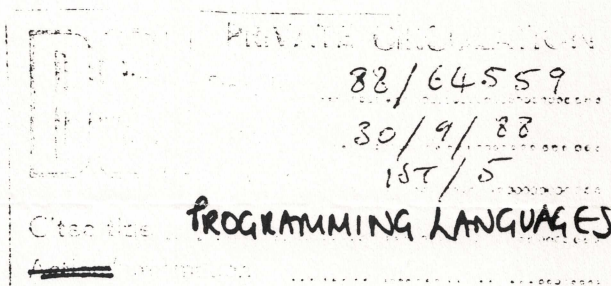 PRIVATE CIRCULATION
88/64559
30/9/88
IST/5
PROGRAMMING LANGUAGES